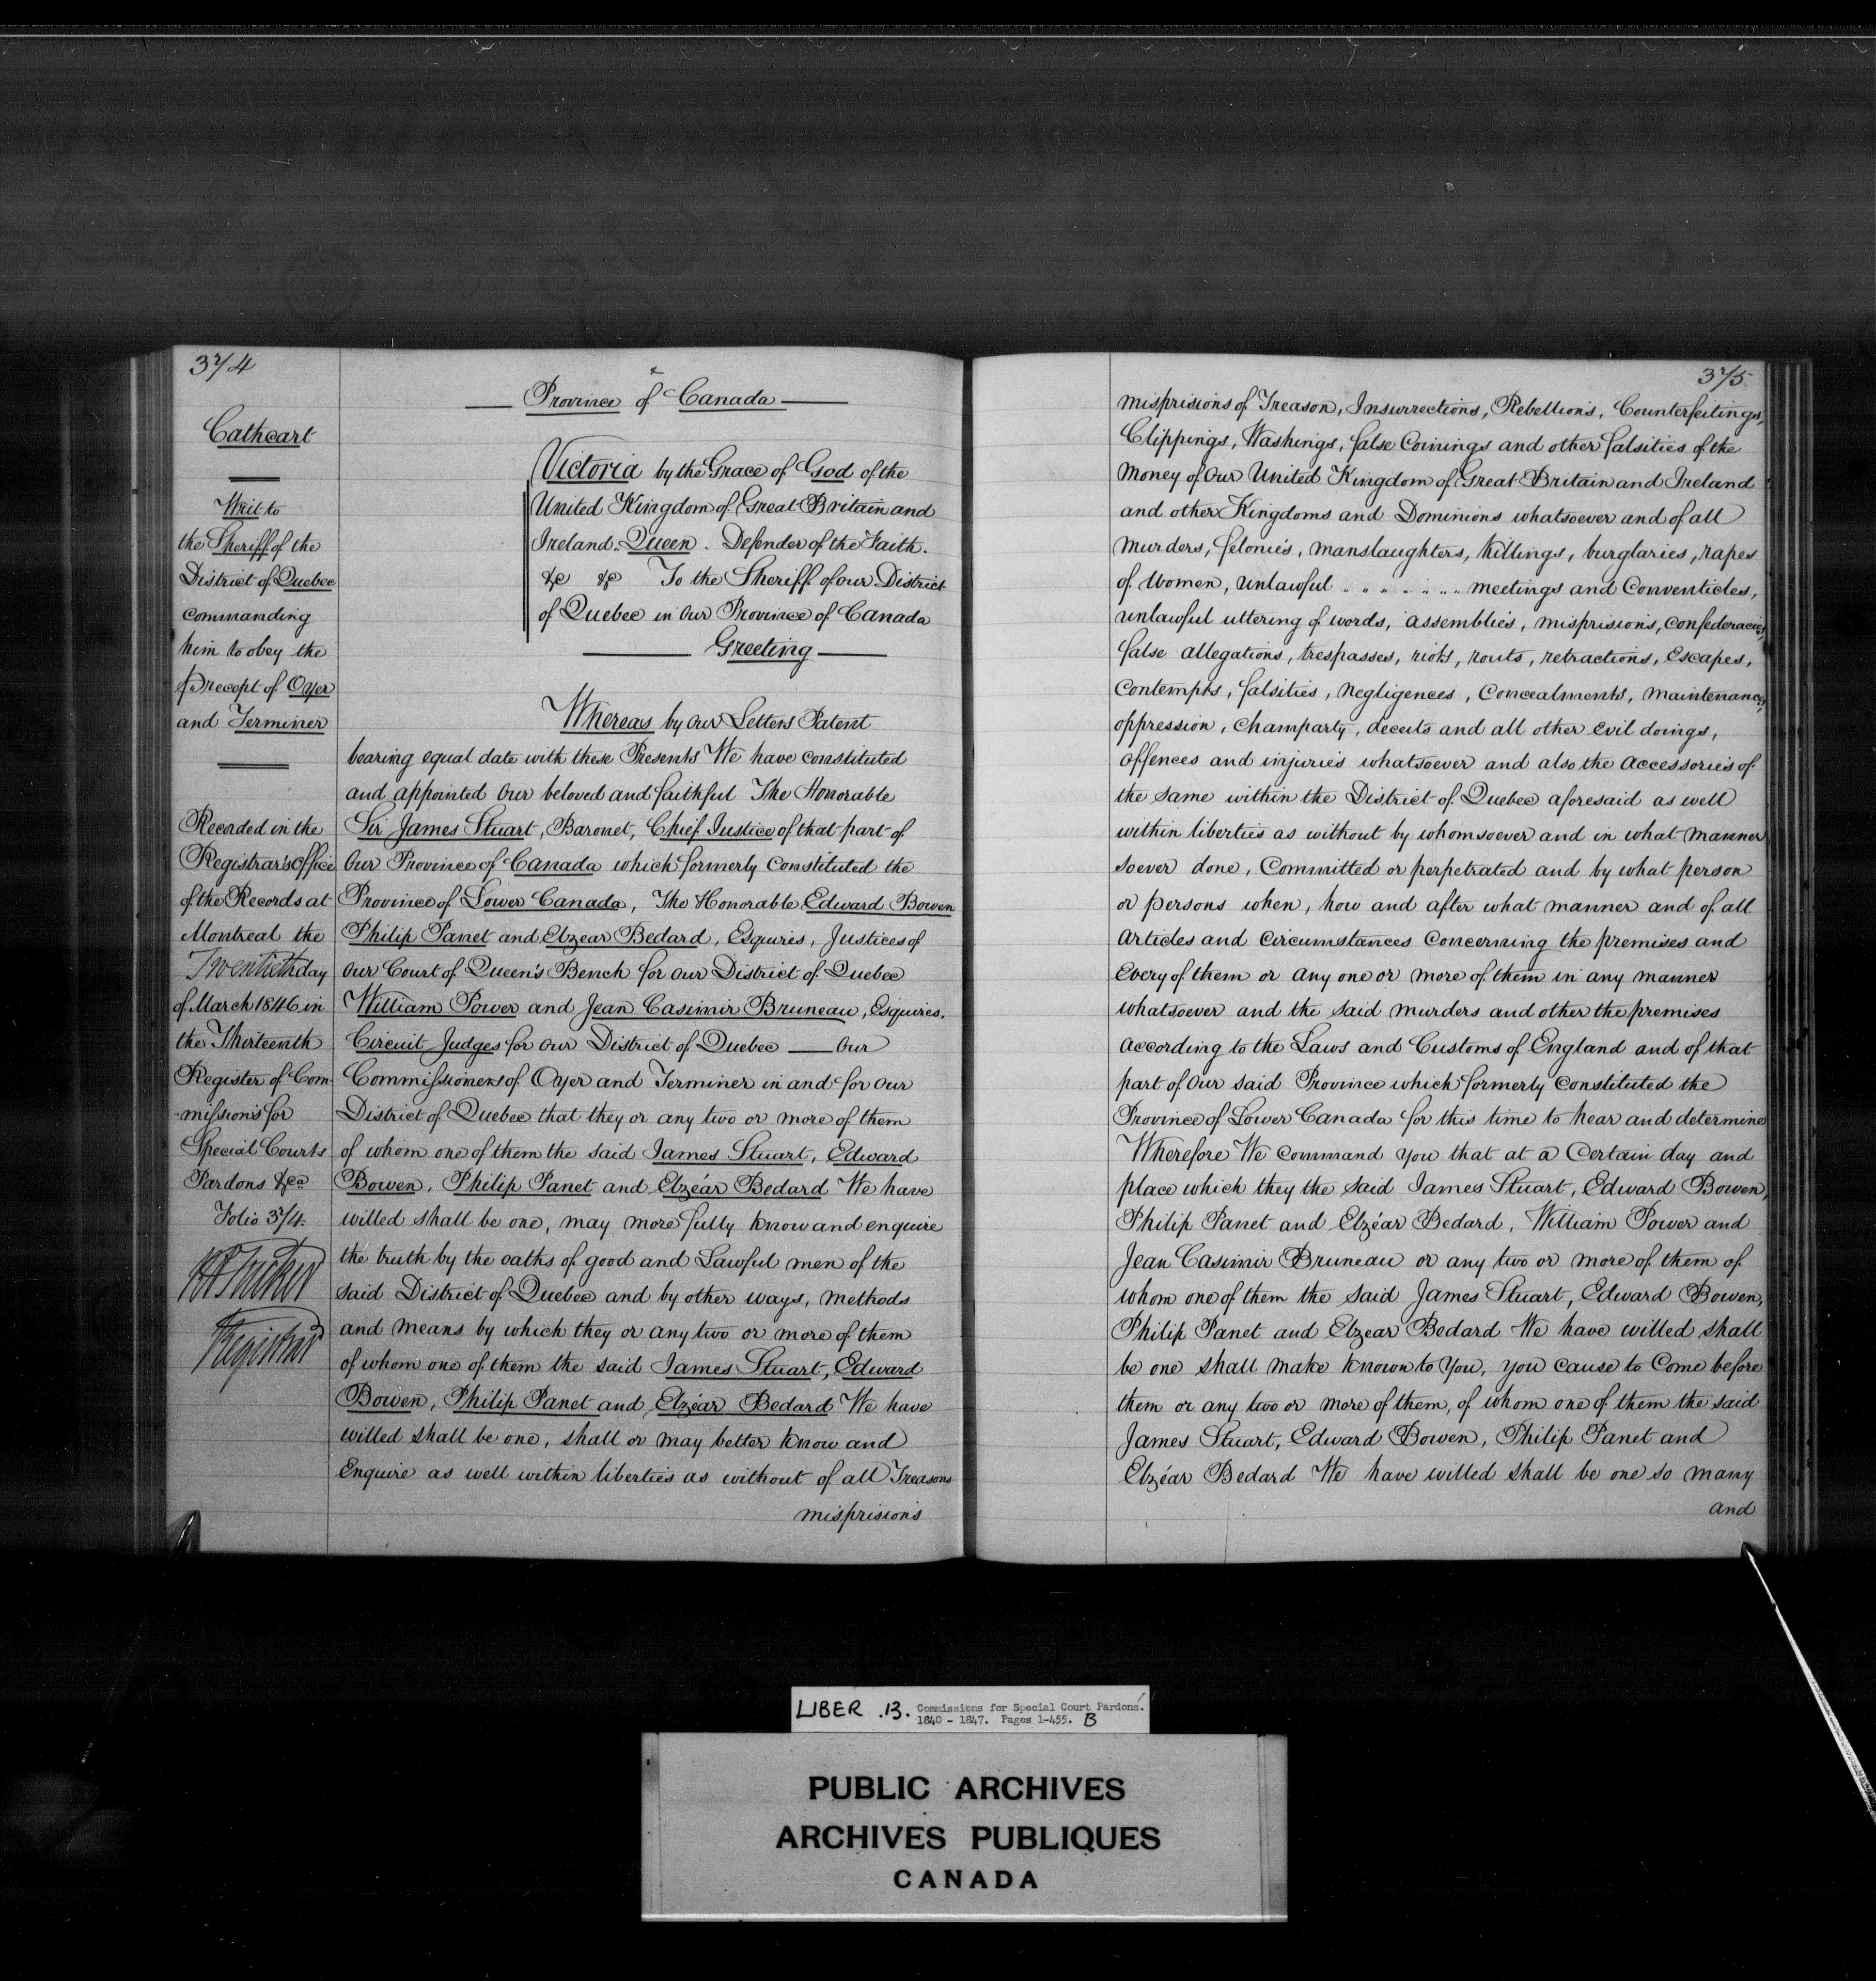 374
Cathcart
Writ to
the Sheriff of the
District of Quebec
commanding
him to obey the
precept of Oyer
and Terminer
Recorded in the
Registrar's Office
of the Records at
Montreal the
Twentieth day
of March 1846 in
the Thirteenth
Register of Com-
missions for
Special Courts
Pardons &ca
Folio 374.
Registrar
Province of Canada
Victoria by the Grace of God of the
United Kingdom of Great Britain and
Ireland. Queen. Defender of the Faith.
&c &c To the Sheriff of our District
of Quebec in Our Province of Canada
Greeting
Whereas by our Letters Patent
bearing equal date with these Presents We have constituted
and appointed Our beloved and faithful The Honorable
Sir James Stuart, Baronet, Chief Justice of that part of
Our Province of Canada which formerly Constituted the
Province of Lower Canada, The Honorable Edward Bowen
Philip Panet and Elzear Bedard, Esquires, Justices of
our Court of Queen's Bench for our District of Quebec
William Power and Jean Casimir Bruneau, Esquires.
Circuit Judges for our District of Quebec — Our
Commissioners of Oyer and Terminer in and for our
District of Quebec that they or any two or more of them
of whom one of them the said James Stuart, Edward
Bowen, Philip Panet and Elzéar Bedard We have
willed shall be one, may more fully know and enquire
the truth by the oaths of good and Lawful men of the
said District of Quebec and by other ways, methods
and means by which they or any two or more of them
of whom one of them the said James Stuart, Edward
Bowen, Philip Panet and Elzéar Bedard We have
willed shall be one, shall or may better know and
Enquire as well within liberties as without of all Treasons
misprisions
375
misprisions of Treason, Insurrections, Rebellions, Counterfeitings,
Clippings, Washings, false Coinings and other falsities of the
Money of Our United Kingdom of Great Britain and Ireland
and other Kingdoms and Dominions whatsoever and of all
Murders, felonies, manslaughters, Killings, burglaries, rapes
of Women, Unlawful " " " " " " " meetings and Conventicles,
unlawful uttering of words, assemblies, misprisions, confederacies,
false allegations, trespasses, riots, routs, retractions, Escapes,
Contempts, falsities, Negligences, Concealments, Maintenances,
oppression, Champarty, deceits and all other Evil doings,
offences and injuries whatsoever and also the accessories of
the same within the District of Quebec aforesaid as well
within liberties as without by whomsoever and in what manner
soever done, Committed or perpetrated and by what person
or persons when, how and after what manner and of all
articles and Circumstances Concerning the premises and
Every of them or any one or more of them in any manner
whatsoever and the said murders and other the premises
according to the Laws and Customs of England and of that
part of Our said Province which formerly Constituted the
Province of Lower Canada for this time to hear and determine
Wherefore We command you that at a Certain day and
place which they the said James Stuart, Edward Bowen,
Philip Panet and Elzéar Bedard, William Power and
Jean Casimir Bruneau or any two or more of them of
whom one of them the said James Stuart, Edward Bowen,
Philip Panet and Elzear Bedard We have willed shall
be one shall make known to You, you cause to Come before
them or any two or more of them, of whom one of them the said
James Stuart, Edward Bowen, Philip Panet and
Elzéar Bedard We have willed shall be one so many
and
LIBER .13. Commissions for Special Court Pardons.
1840 - 1847. Pages 1-455. B
PUBLIC ARCHIVES
ARCHIVES PUBLIQUES
CANADA